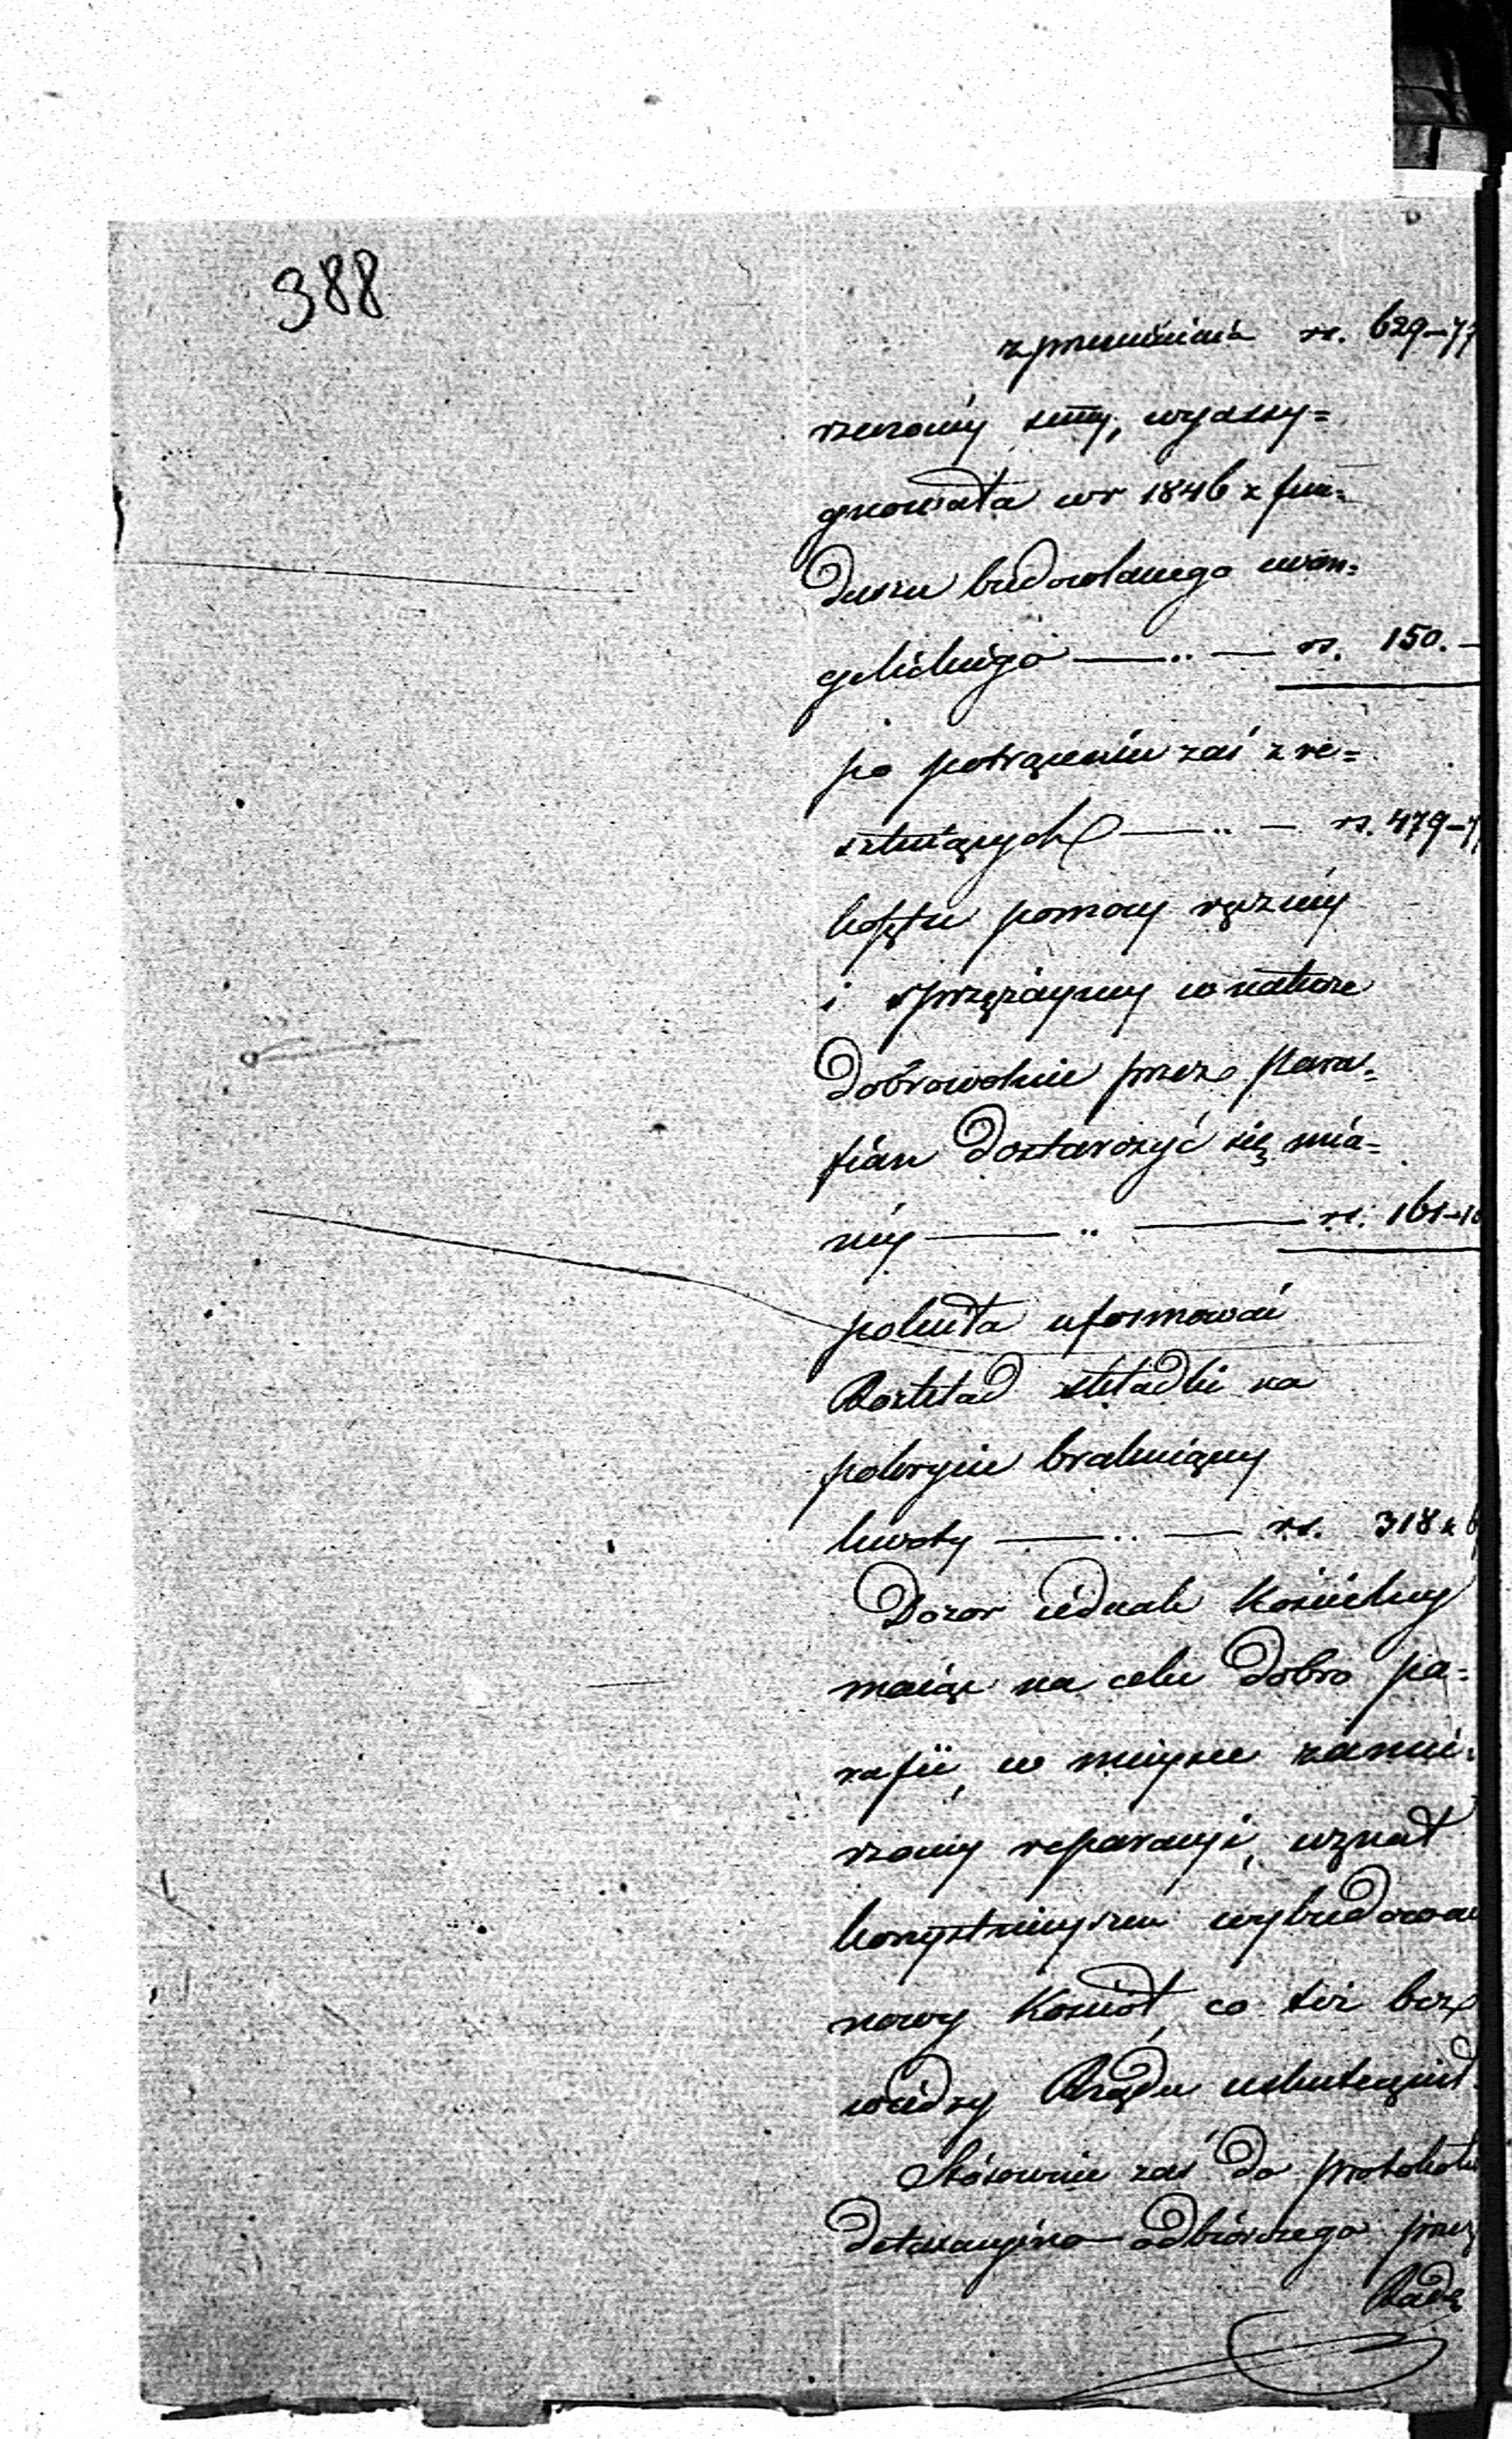 388
z przeniesienia rs. 629-77
rzeczonéj summy, wyassy=
gnowała w r 1846 z fun=
duszu budowlanego ewan=
gelickiego —..— rs. 150.—
po potrąceniu zaś z re=
sztuiących —..— rs. 479-7
kosztu pomocy ręcznéj
i sprzężaynéy w naturze
dobrowolnie przez Para=
fian dostarczyć się maią=
néy —..— rs. 161-1
poleciła uformować
Rozkład składki na
pokrycie brakuiącéy
kwoty —..— rs. 318 k 6
Dozór iednak Kościelny
maiąc na celu dobro pa=
rafii, w mieysce zamie=
rzonéy reparacyi, uznał
korzystnieyszem wybudować
nowy Kościół, co też bez
wiedzy Rządu uskutecznił
Stósownie zaś do protokołu
detaxacyino odbiorczego przez
Radę